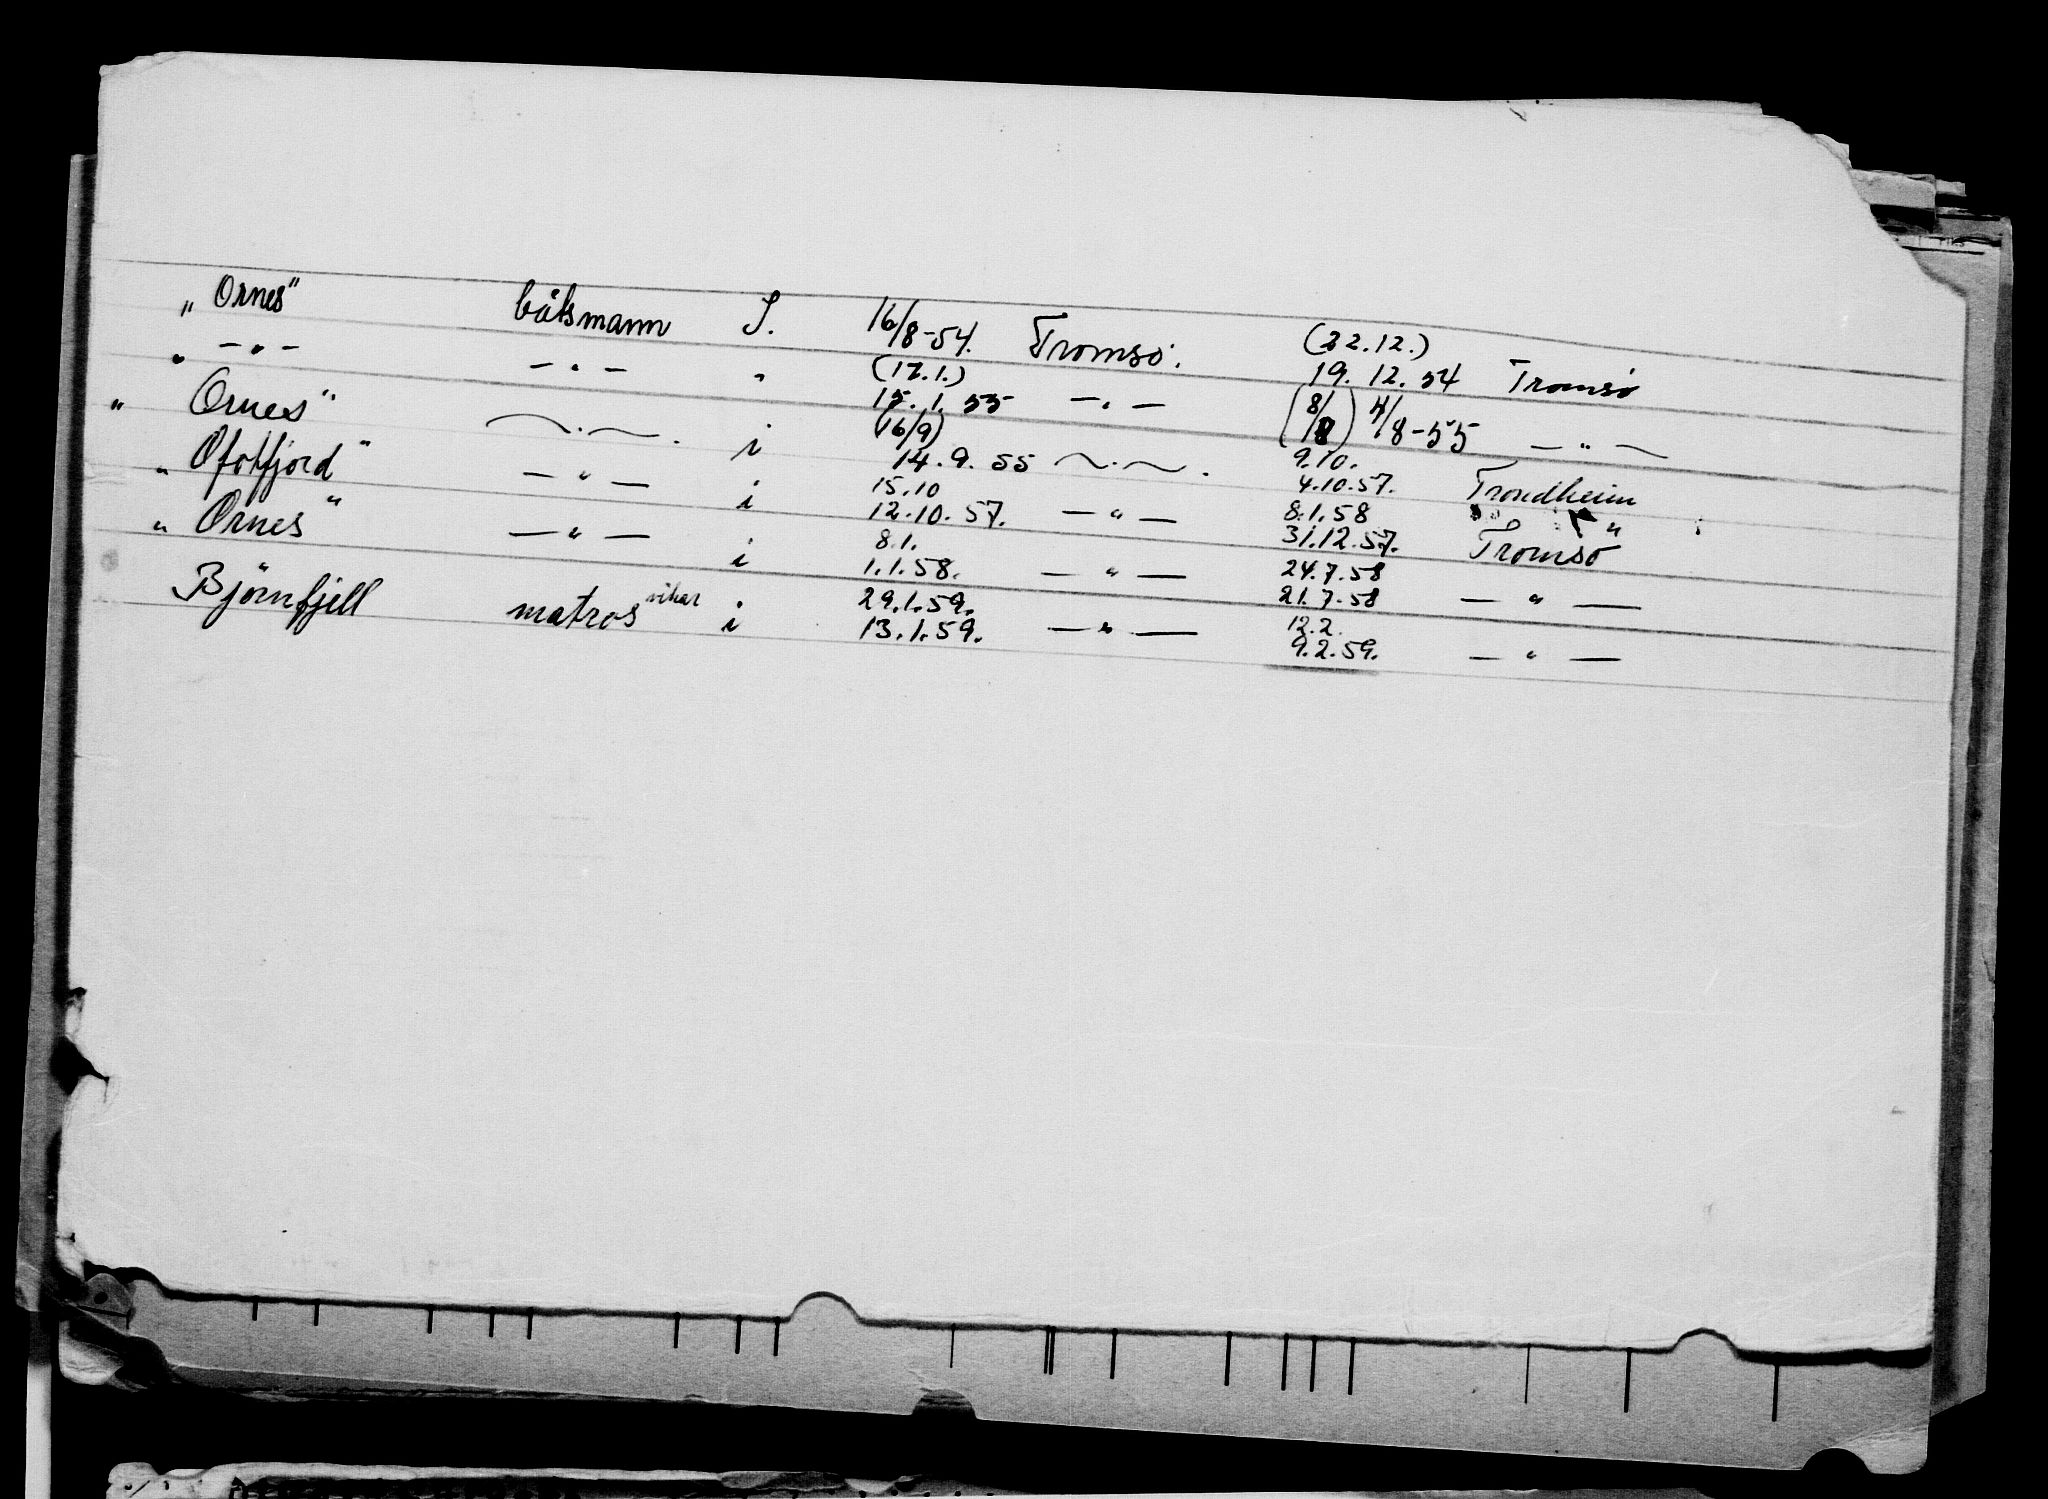 „ Ornes" båtsmann I. 16/8-54. Tromsø. (22.12.) 19. 12. 54 Tromsø
„ — „ — — „ — „ (17.1.) 15. 1. 55 — „ — (8/8) 4/8-55 — „ —
„ Ornes" — „ — . i (16/9) 14. 9. 55 — „ — . 9.10. 4.10.57. Trondheim
„ Ofotfjord" — „ — i 15.10 12.10.57. — „ — 8.1.58 31.12.57. Tromsø
„ Ornes" — „ — i 8.1. 1.1.58. — „ — 24.7.58 21.7.58 — „ —
Bjørnfjell matros vikar i i 29.1.59. 13.1.59. — „ — 12.2. 9.2.59. — „ —